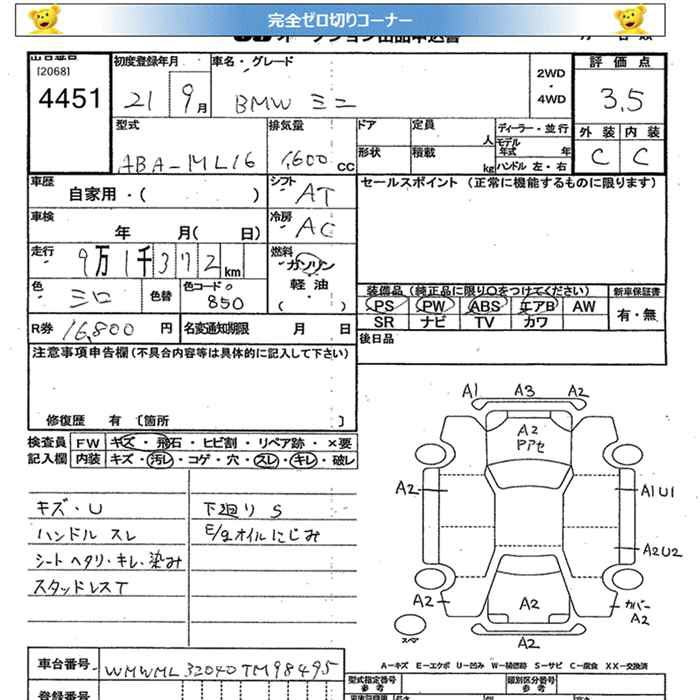 完全ゼロ切りコーナー
出品番号
[2068]
4451
初度登録年月
21 9月
車名・グレード
BMW ミニ
2WD
・
4WD
評価点
3.5
外装 内装
C C
型式
ABA-ML16
排気量
1,600 CC
ドア
定員
人
形状
積載
kg
ディーラー・並行
モデル年式 年
ハンドル 左・右
車歴
自家用・( )
シフト
AT
セールスポイント (正常に機能するものに限ります)
車検
年 月( 日)
冷房
AC
走行
9万1千372km
燃料
ガソリン
・
軽油
・
( )
色
シロ
色替
色コード
850
装備品(純正品に限り○をつけてください)
新車保証書
PS PW ABS エアB AW
有・無
SR ナビ TV カワ
R券 16,800円
名変通知期限 月 日
後日品
注意事項申告欄(不具合内容等は具体的に記入して下さい)
修復歴 有 [箇所 ]
検査員 FW キズ・飛石・ヒビ割・リペア跡・×要
記入欄 内装 キズ・汚レ・コゲ・穴・スレ・キレ・破レ
キズ・U
ハンドル スレ
シートヘタリ・キレ・染み
スタッドレスT
下廻り S
E/gオイルにじみ
A1 A3 A2
A2
Pアセ
A2
A1U1
A2U2
A2
A2
カバーA2
スペア
A2
車台番号
WMWML32040TM98495
A-キズ E-エクボ U-凹み W-補修跡 S-サビ C-腐食 XX-交換済
型式指定番号
参考
類別区分番号
参考
登録番号
長さ